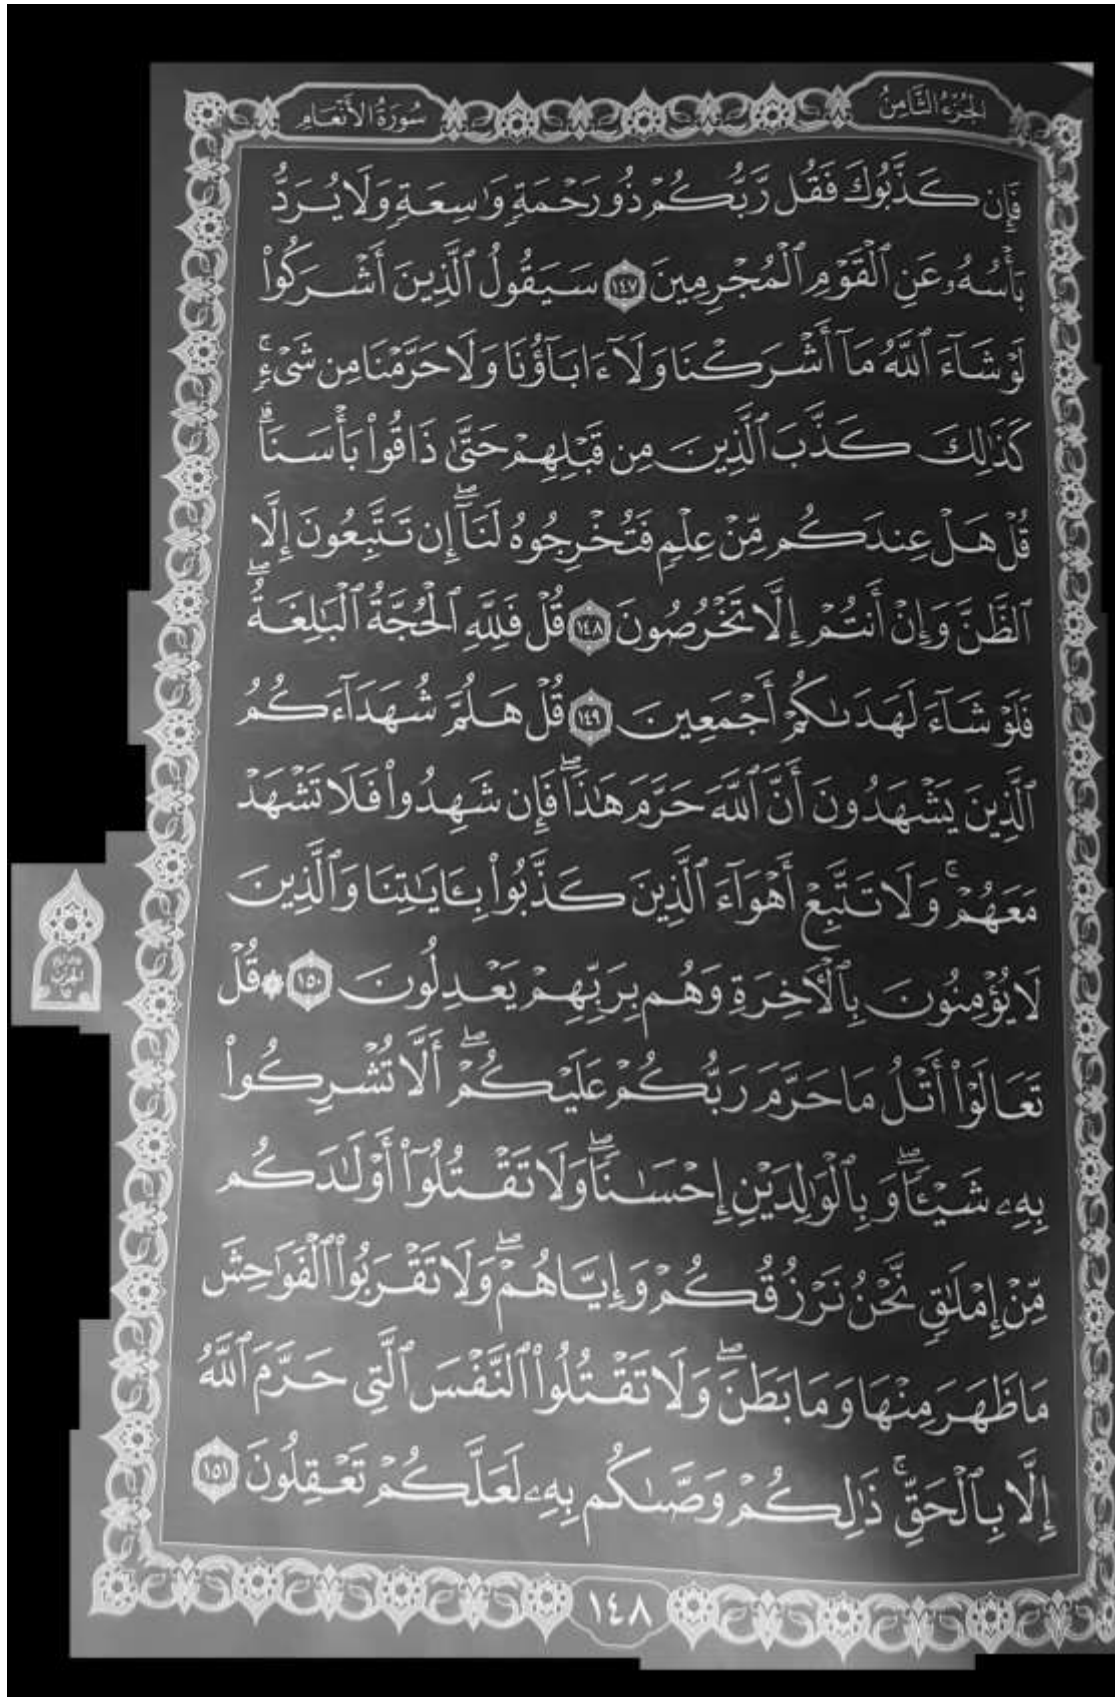 الجُزْءُ الثَّامِنُ
سُورَةُ الأَنْعَامِ
فَإِن كَذَّبُوكَ فَقُل رَّبُّكُمْ ذُو رَحْمَةٍ وَٰسِعَةٍ وَلَا يُرَدُّ
بَأْسُهُۥ عَنِ ٱلْقَوْمِ ٱلْمُجْرِمِينَ ١٤٧ سَيَقُولُ ٱلَّذِينَ أَشْرَكُوا۟
لَوْ شَآءَ ٱللَّهُ مَآ أَشْرَكْنَا وَلَآ ءَابَآؤُنَا وَلَا حَرَّمْنَا مِن شَىْءٍۚ
كَذَٰلِكَ كَذَّبَ ٱلَّذِينَ مِن قَبْلِهِمْ حَتَّىٰ ذَاقُوا۟ بَأْسَنَاۗ
قُلْ هَلْ عِندَكُم مِّنْ عِلْمٍ فَتُخْرِجُوهُ لَنَآۖ إِن تَتَّبِعُونَ إِلَّا
ٱلظَّنَّ وَإِنْ أَنتُمْ إِلَّا تَخْرُصُونَ ١٤٨ قُلْ فَلِلَّهِ ٱلْحُجَّةُ ٱلْبَٰلِغَةُۖ
فَلَوْ شَآءَ لَهَدَىٰكُمْ أَجْمَعِينَ ١٤٩ قُلْ هَلُمَّ شُهَدَآءَكُمُ
ٱلَّذِينَ يَشْهَدُونَ أَنَّ ٱللَّهَ حَرَّمَ هَٰذَاۖ فَإِن شَهِدُوا۟ فَلَا تَشْهَدْ
مَعَهُمْۚ وَلَا تَتَّبِعْ أَهْوَآءَ ٱلَّذِينَ كَذَّبُوا۟ بِـَٔايَٰتِنَا وَٱلَّذِينَ
لَا يُؤْمِنُونَ بِٱلْـَٔاخِرَةِ وَهُم بِرَبِّهِمْ يَعْدِلُونَ ١٥٠ ۞ قُلْ
تَعَالَوْا۟ أَتْلُ مَا حَرَّمَ رَبُّكُمْ عَلَيْكُمْۖ أَلَّا تُشْرِكُوا۟
بِهِۦ شَيْـًٔاۖ وَبِٱلْوَٰلِدَيْنِ إِحْسَٰنًاۖ وَلَا تَقْتُلُوٓا۟ أَوْلَٰدَكُم
مِّنْ إِمْلَٰقٍ نَّحْنُ نَرْزُقُكُمْ وَإِيَّاهُمْۖ وَلَا تَقْرَبُوا۟ ٱلْفَوَٰحِشَ
مَا ظَهَرَ مِنْهَا وَمَا بَطَنَۖ وَلَا تَقْتُلُوا۟ ٱلنَّفْسَ ٱلَّتِى حَرَّمَ ٱللَّهُ
إِلَّا بِٱلْحَقِّۚ ذَٰلِكُمْ وَصَّىٰكُم بِهِۦ لَعَلَّكُمْ تَعْقِلُونَ ١٥١
١٤٨